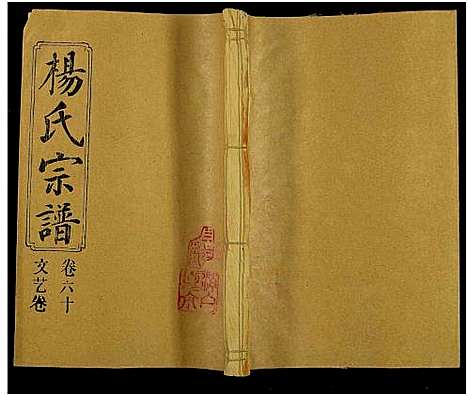 楊氏宗譜
卷六十
文艺卷